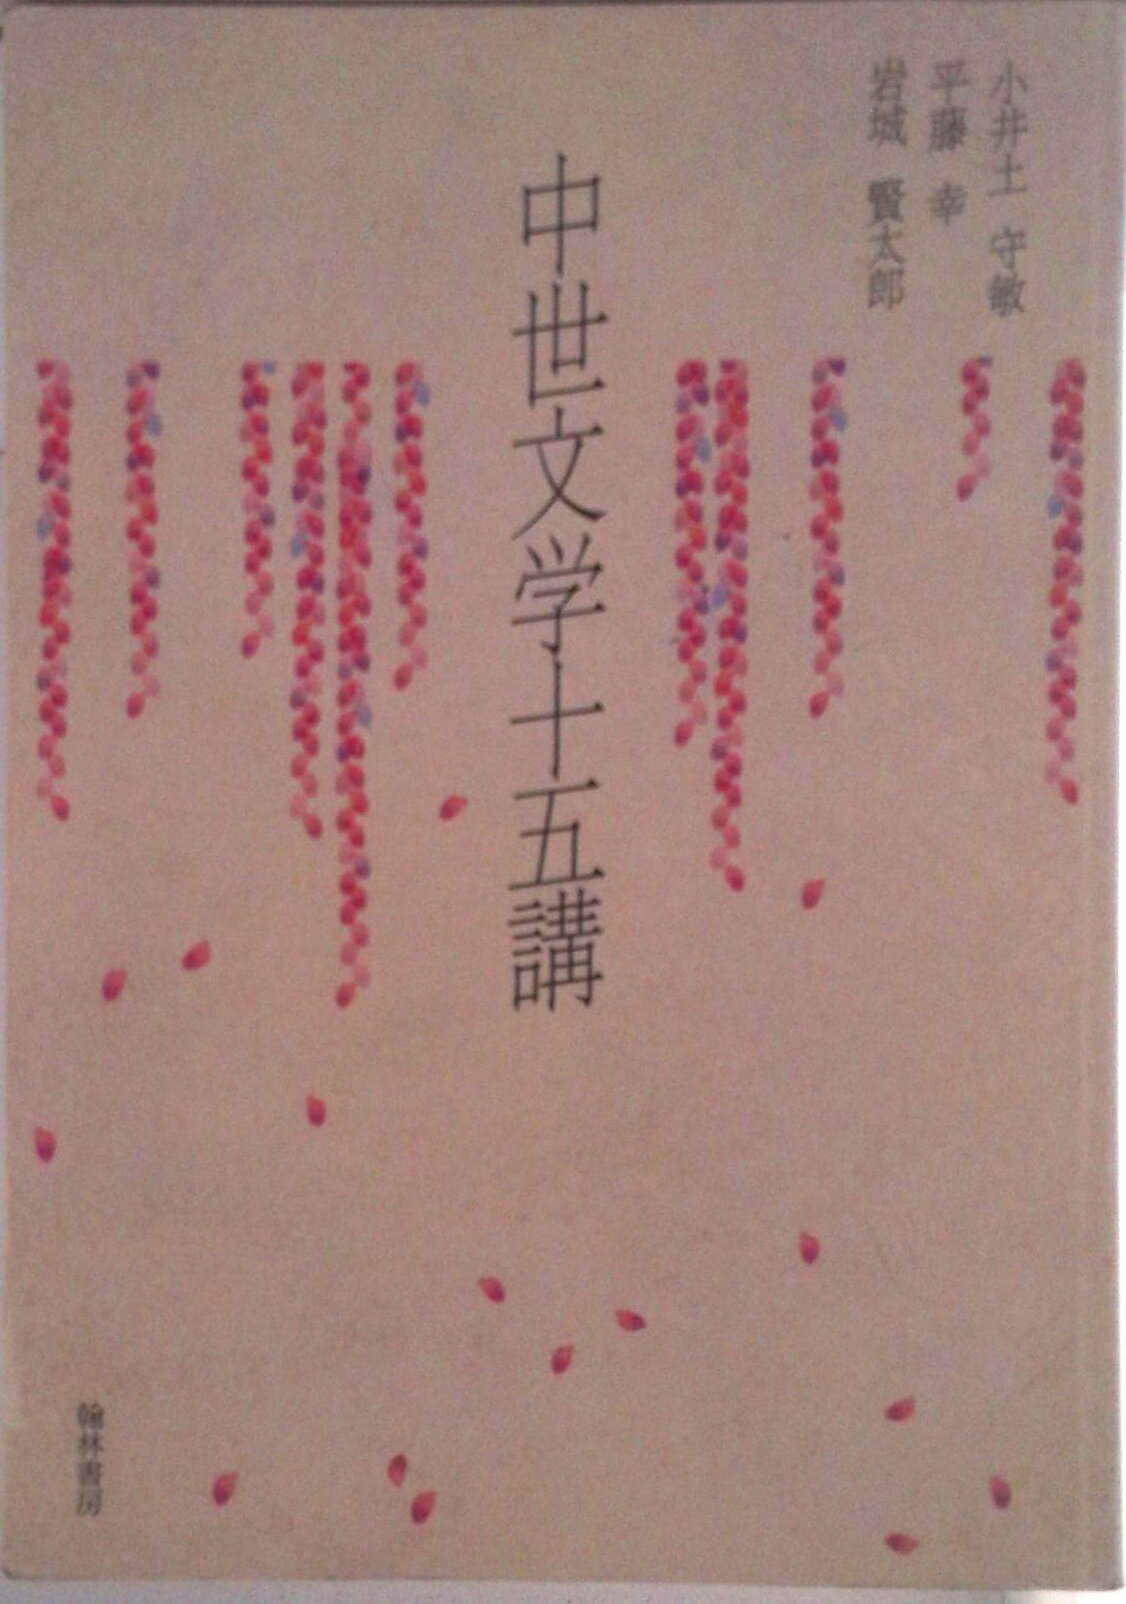 小井土 守敏
平藤 幸
岩城 賢太郎
中世文学十五講
翰林書房